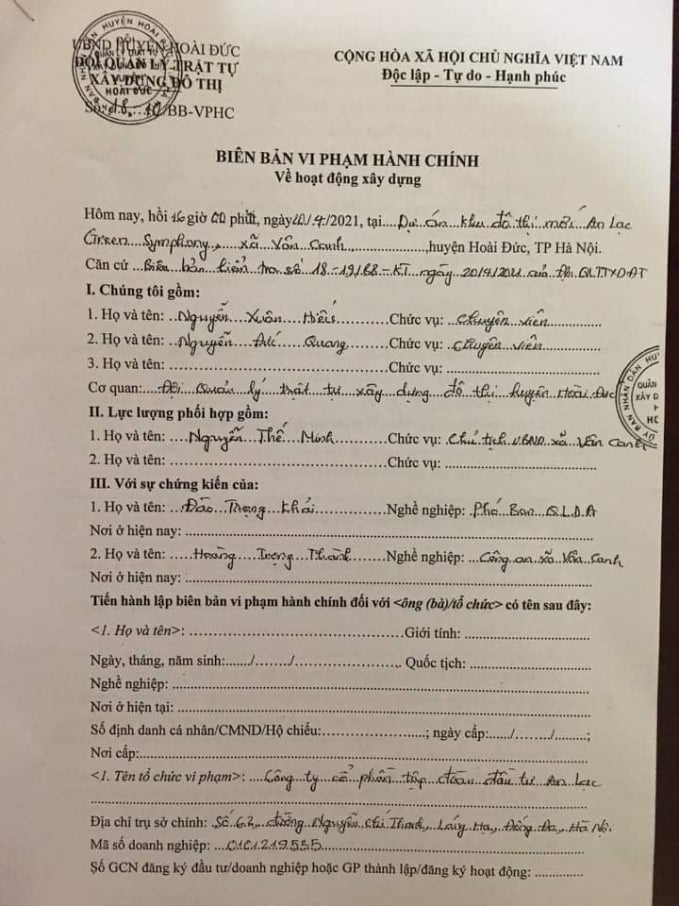 UBND HUYỆN HOÀI ĐỨC
ĐỘI QUẢN LÝ TRẬT TỰ
XÂY DỰNG ĐÔ THỊ
Số: 18-19/BB-VPHC
CỘNG HÒA XÃ HỘI CHỦ NGHĨA VIỆT NAM
Độc lập - Tự do - Hạnh phúc
BIÊN BẢN VI PHẠM HÀNH CHÍNH
Về hoạt động xây dựng
Hôm nay, hồi 16 giờ 00 phút, ngày 20/4/2021, tại Dự án khu đô thị mới An Lạc
Green Symphony, xã Vân Canh, huyện Hoài Đức, TP Hà Nội.
Căn cứ Biên bản kiểm tra số 18-19/BB-KT ngày 20/4/2021 của Đội QLTTXDĐT
I. Chúng tôi gồm:
1. Họ và tên: Nguyễn Xuân Hiếu Chức vụ: Chuyên viên
2. Họ và tên: Nguyễn Đức Quang Chức vụ: Chuyên viên
3. Họ và tên: Chức vụ:
Cơ quan: Đội Quản lý trật tự xây dựng đô thị huyện Hoài Đức
II. Lực lượng phối hợp gồm:
1. Họ và tên: Nguyễn Thế Minh Chức vụ: Chủ tịch UBND xã Vân Canh
2. Họ và tên: Chức vụ:
III. Với sự chứng kiến của:
1. Họ và tên: Đào Trọng Khải Nghề nghiệp: Phó Ban QLDA
Nơi ở hiện nay:
2. Họ và tên: Hoàng Trọng Thành Nghề nghiệp: Công an xã Vân Canh
Nơi ở hiện nay:
Tiến hành lập biên bản vi phạm hành chính đối với <ông (bà)/tổ chức> có tên sau đây:
<1. Họ và tên>: Giới tính:
Ngày, tháng, năm sinh: / / Quốc tịch:
Nghề nghiệp:
Nơi ở hiện tại:
Số định danh cá nhân/CMND/Hộ chiếu: ; ngày cấp: / / ;
Nơi cấp:
<1. Tên tổ chức vi phạm>: Công ty cổ phần tập đoàn đầu tư An Lạc
Địa chỉ trụ sở chính: Số 62, đường Nguyễn Chí Thanh, Láng Hạ, Đống Đa, Hà Nội
Mã số doanh nghiệp: 0101219535
Số GCN đăng ký đầu tư/doanh nghiệp hoặc GP thành lập/đăng ký hoạt động: